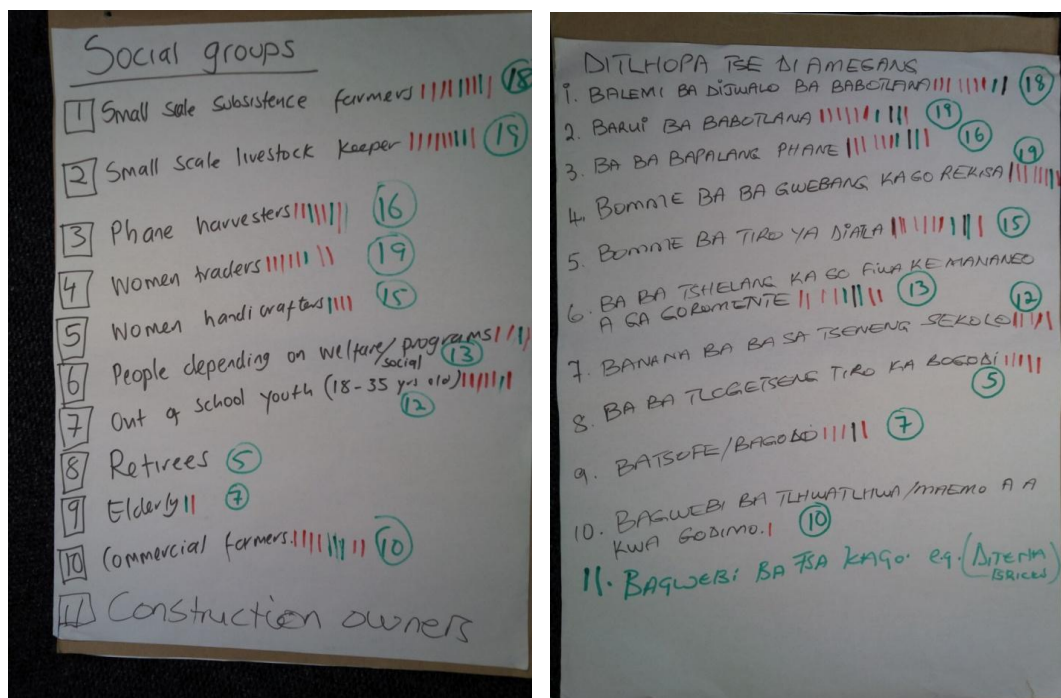 Social groups
1 Small scale subsistence farmers 18
2 Small scale livestock keeper 19
3 Phane harvesters 16
4 Women traders 19
5 Women handicrafters 15
6 People depending on welfare/programs
social 13
7 Out of school youth (18-35 yrs old)
12
8 Retirees 5
9 Elderly 7
10 Commercial farmers. 10
11 Construction owners
DITLHOPA TSE DI AMEGANG
1. BALEMI BA DIJWALO BA BABOTLANA 18
2. BARUI BA BABOTLANA 19
3. BA BA BAPALANG PHANE 16
19
4. BOMME BA BA GWEBANG KA GO REKISA
5. BOMME BA TIRO YA DIATLA 15
6. BA BA TSHELANG KA GO FIWA KE MANANEO
A GA GOROMENTE 13
12
7. BANANA BA BA SA TSENENG SEKOLO
8. BA BA TLOGETSENG TIRO KA BOGODI
5
9. BATSOFE/BAGODI 7
10. BAGWEBI BA TLHWATLHWA/MAEMO A A
KWA GODIMO. 10
11. BAGWEBI BA TSA KAGO. e.g. (DITENA
BRICKS)